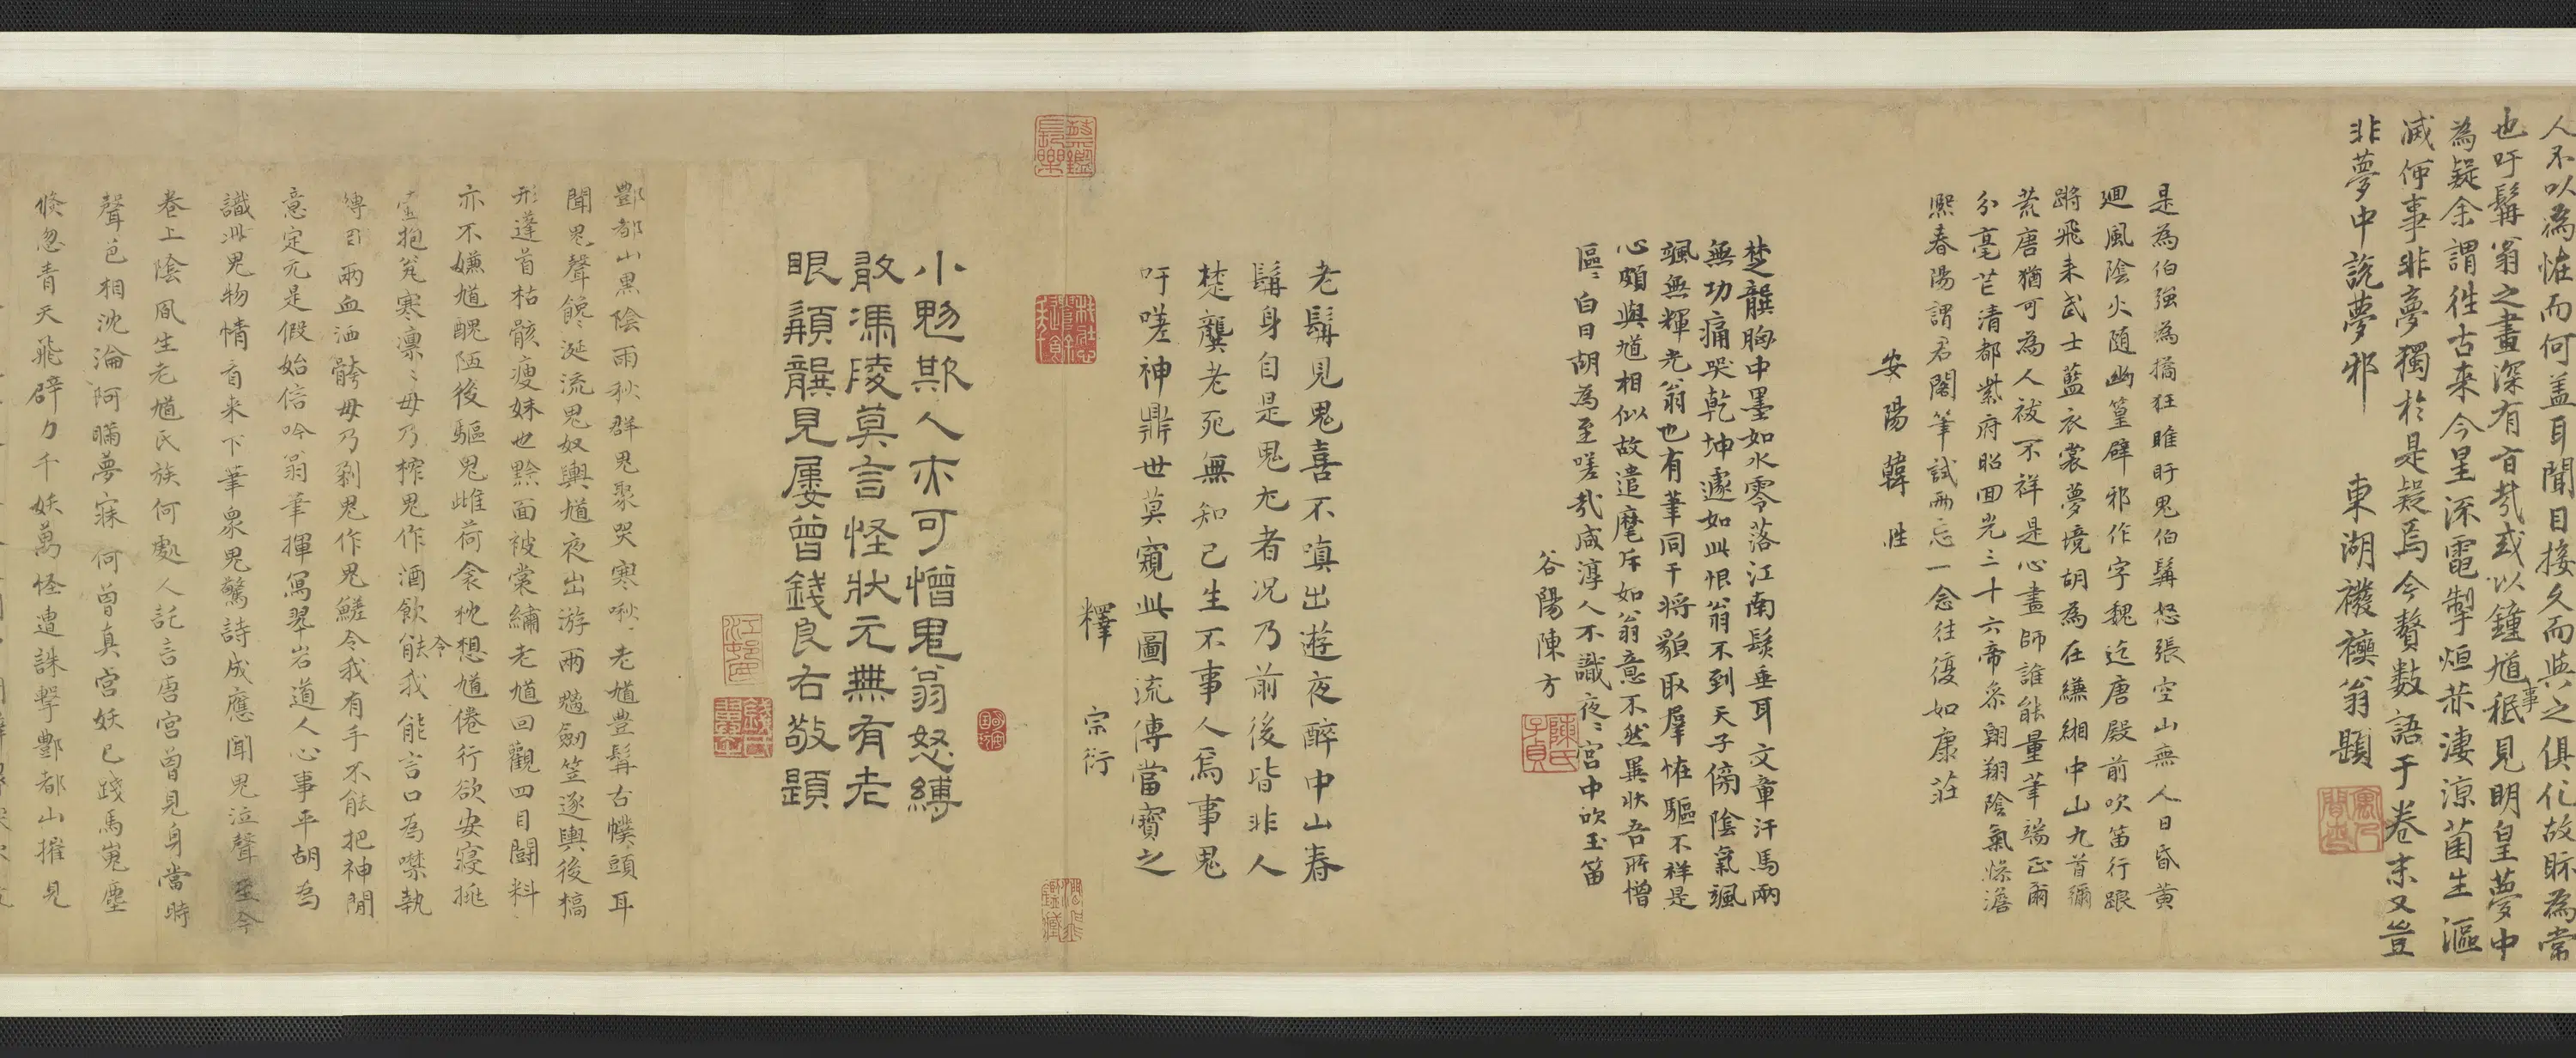 人不以為怪而何盖耳聞目接久而與之俱化故眎為常
也吁髯翁之畫深有旨哉或以鍾馗事秪見明皇夢中
為疑余謂徃古来今星流電掣烜赫淒涼菌生漚
滅何事非夢獨於是疑焉今贅数語于卷末又豈
非夢中說夢邪 東湖襪襪翁題
是為伯強為獝狂睢盱鬼伯髯怒張空山無人日昏黄
廻風陰火随幽篁辟邪作字魏迄唐殿前吹笛行踉
蹡飛来武士藍衣裳夢境胡為在縑緗中山九首彌
荒唐猶可為人祓不祥是心畫師誰能量筆端正爾
分毫芒清都紫府昭回光三十六帝参翺翔陰氣慘澹
熙春陽謂君閣筆試兩忘一念往復如康莊
安陽韓性
楚龔胸中墨如水零落江南髮垂耳文章汗馬兩
無功痛哭乾坤遽如此恨翁不到天子傍陰氣颯
颯無輝光翁也有筆同干将貌取羣怪驅不祥是
心頗與馗相似故遣麾斥如翁意不然異狀吾所憎
區〻白日胡為至嗟哉咸淳人不識夜〻宫中吹玉笛
谷陽陳方
陳氏子貞
老髯見鬼喜不嗔出遊夜醉中山春
髯身自是鬼尤者况乃前後皆非人
楚龔老死無知己生不事人焉事鬼
吁嗟神鼎世莫窺此圖流傳當寶之
釋 宗衍
小鬽欺人亦可憎鬼翁怒縛
敢馮陵莫言怪狀元無有老
眼龔見屢曾錢良右敬題
酆都山黒陰雨秋群鬼聚哭寒啾〻老馗豊髯古幞頭耳
聞鬼聲饞涎流鬼奴輿馗夜出游兩魑劒笠逐輿後槁
形蓬首枯骸瘦妹也黥面被裳繡老馗回觀四目鬬料
亦不嫌馗醜陋後驅鬼雌荷衾枕想馗倦行欲安寝挑
壺抱瓮寒凛〻毋乃榨鬼作酒飲令我能言口為噤執
縛引兩血洒骻毋乃剁鬼作鬼鮓令我有手不能把神閒
意定元是假始信吟翁筆揮寫翠岩道人心事平胡為
識此鬼物情看来下筆衆鬼驚詩成應聞鬼泣聲至今
卷上陰風生老馗氏族何處人託言唐宫曾見身當時
聲色相沈淪阿瞞夢寐何曾真宫妖已踐馬嵬塵
倐忽青天飛霹力千妖萬怪遭誅擊酆都山摧見